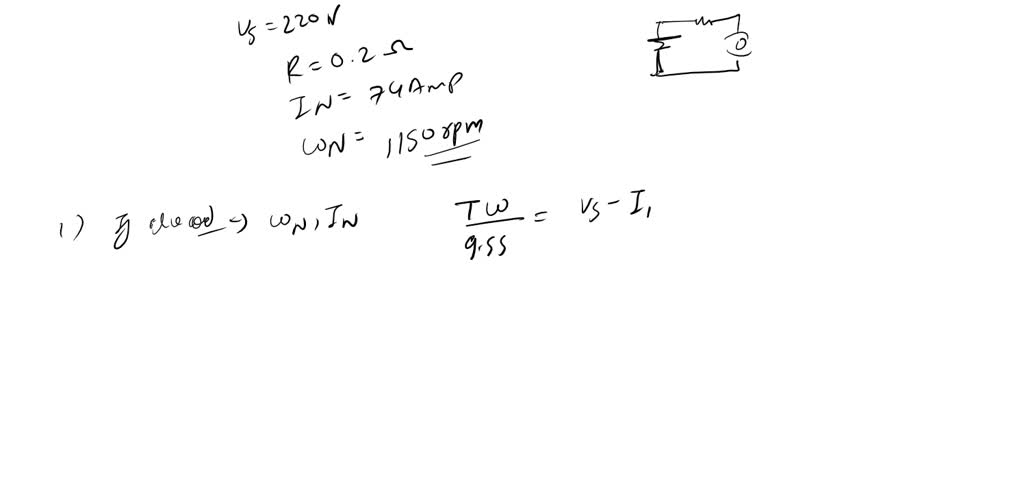 Vs = 220 V
R = 0.2 Ω
IN = 74 Amp
ωN = 1150 rpm
1) If → ωN, IN
Tω / 9.55 = Vs - I,